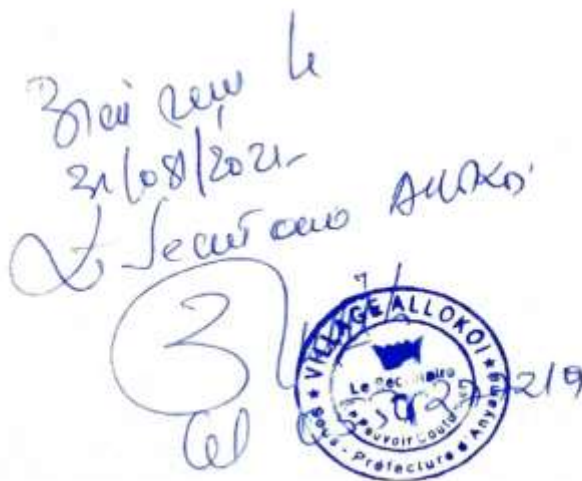 Bien reçu le
31/08/2021-
Le Secrétaire ALLOKOI
VILLAGE ALLOKOI
Le Secrétaire
Pouvoir Coutumier
Sous-Préfecture Anyama